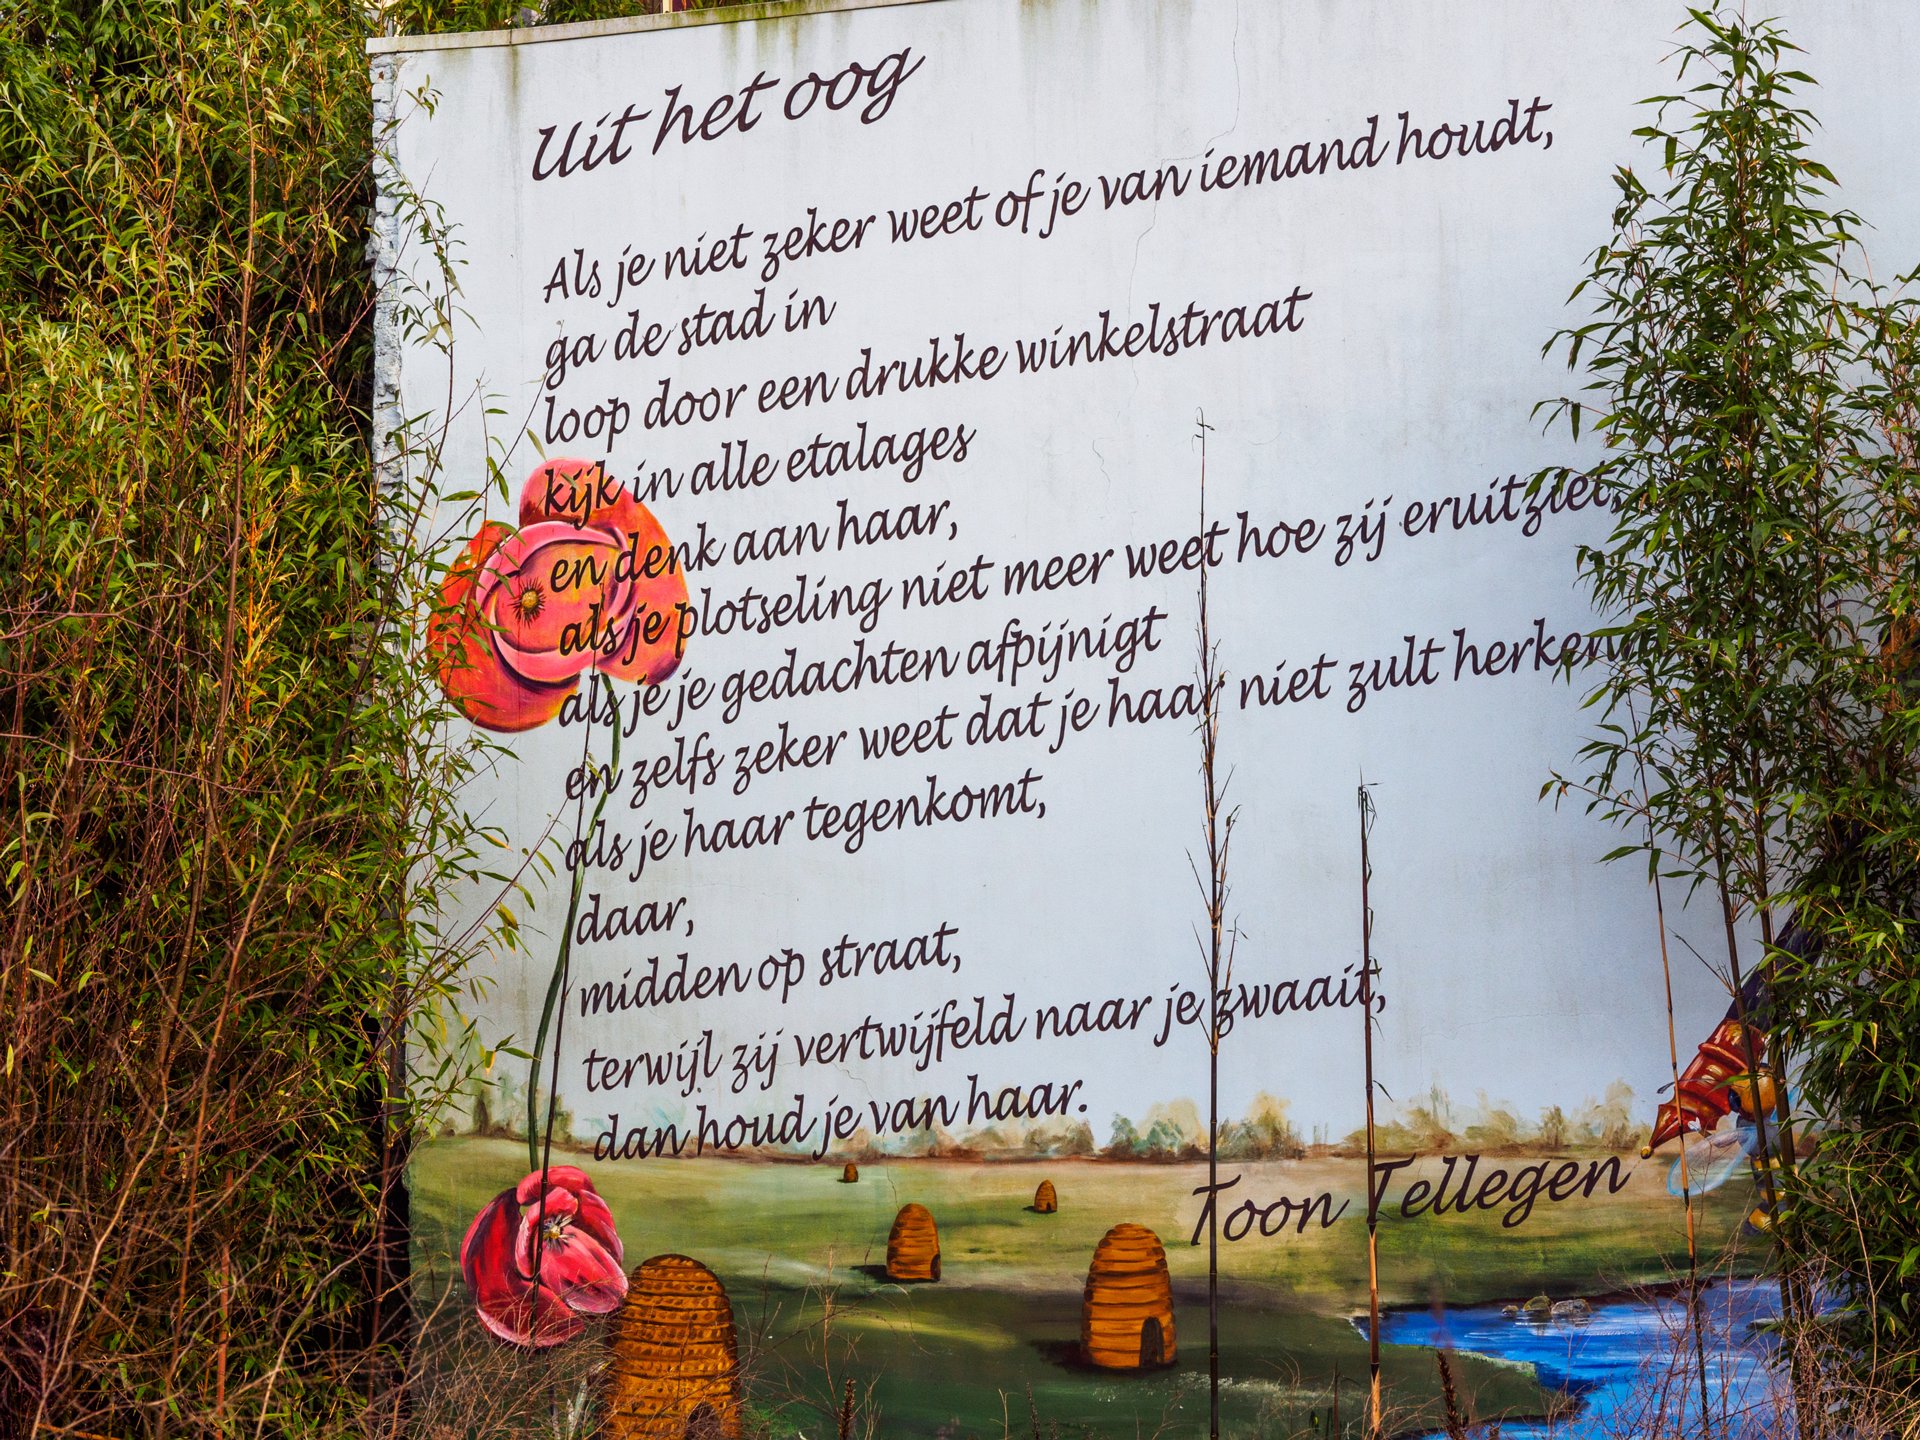 Uit het oog
Als je niet zeker weet of je van iemand houdt,
ga de stad in
loop door een drukke winkelstraat
kijk in alle etalages
en denk aan haar,
als je plotseling niet meer weet hoe zij eruitziet,
als je je gedachten afpijnigt
en zelfs zeker weet dat je haar niet zult herkennen
als je haar tegenkomt,
daar,
midden op straat,
terwijl zij vertwijfeld naar je zwaait,
dan houd je van haar.
Toon Tellegen